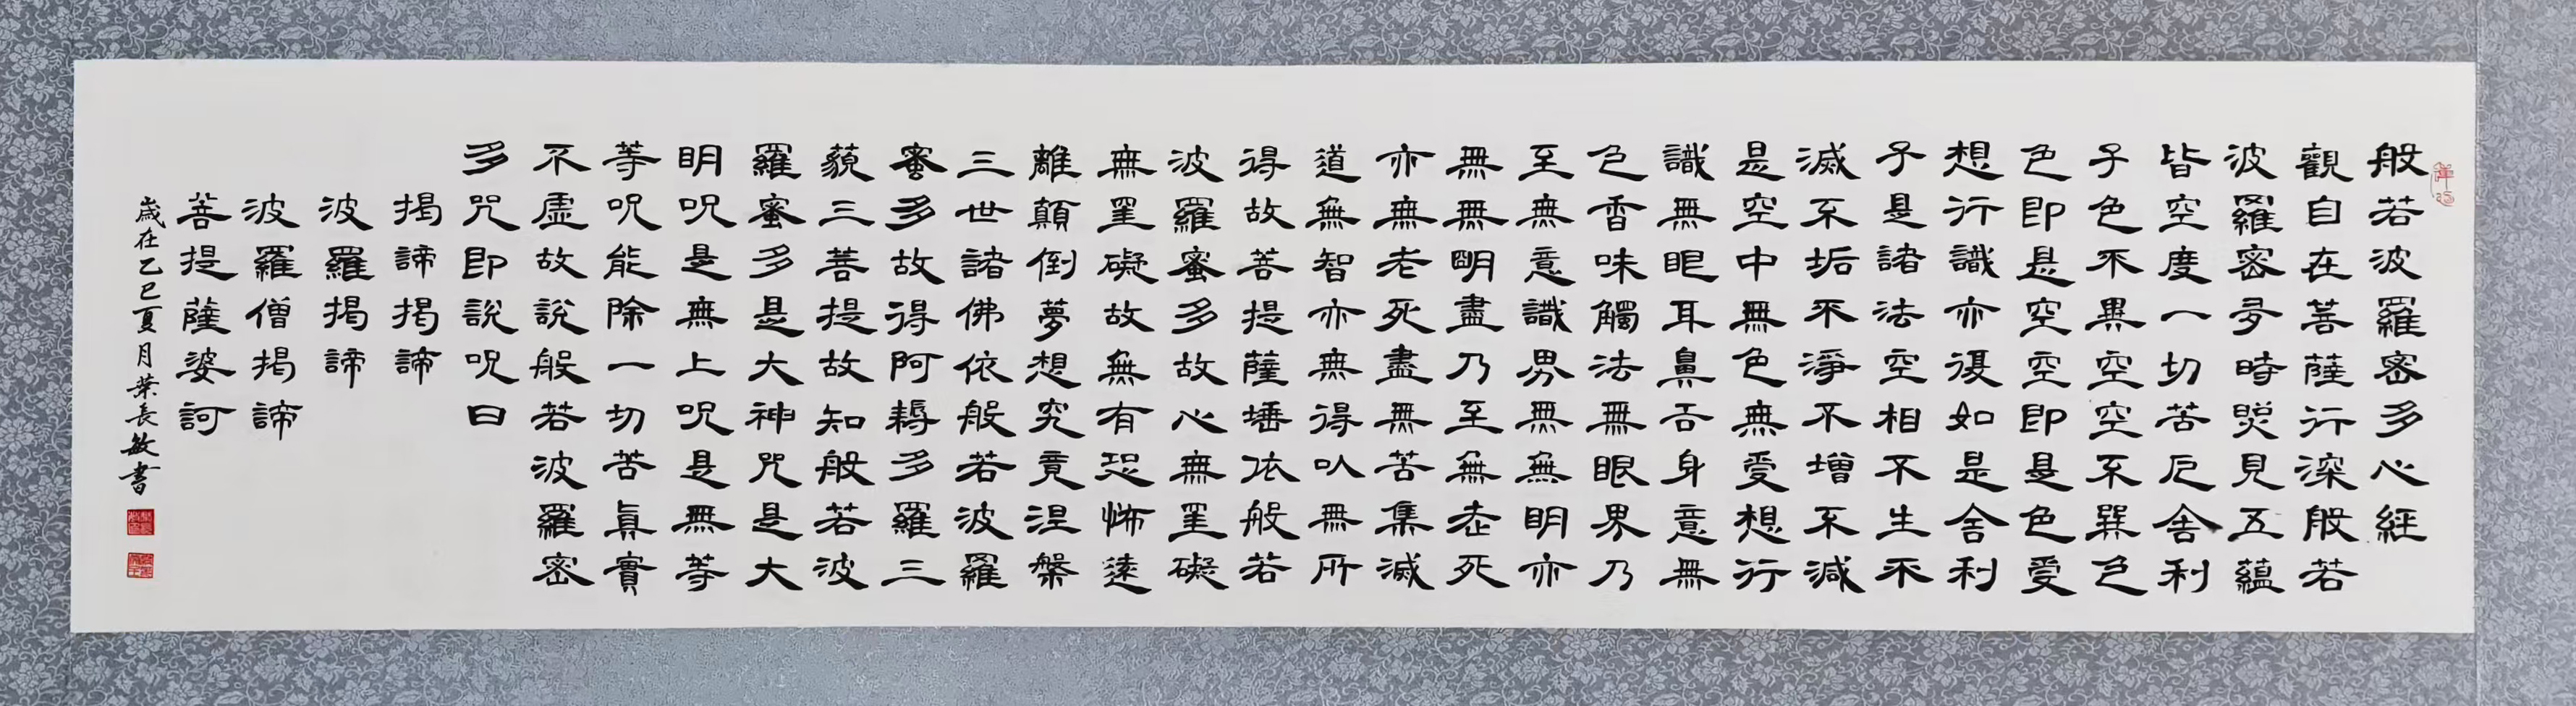 般若波羅密多心経
觀自在菩薩行深般若
波羅密多時照見五蘊
皆空度一切苦厄舍利
子色不異空空不異色
色即是空空即是色受
想行識亦復如是舍利
子是諸法空相不生不
滅不垢不淨不增不減
是空中無色無受想行
識無眼耳鼻舌身意無
色香味觸法無眼界乃
至無意識界無無明亦
無無明盡乃至無老死
亦無老死盡無苦集滅
道無智亦無得以無所
得故菩提薩埵依般若
波羅蜜多故心無罣礙
無罣礙故無有恐怖遠
離顛倒夢想究竟涅槃
三世諸佛依般若波羅
蜜多故得阿耨多羅三
藐三菩提故知般若波
羅蜜多是大神咒是大
明呪是無上呪是無等
等呪能除一切苦真實
不虛故說般若波羅密
多咒即說呪曰
揭諦揭諦
波羅揭諦
波羅僧揭諦
菩提薩婆訶
歲在乙巳夏月葉長敏書